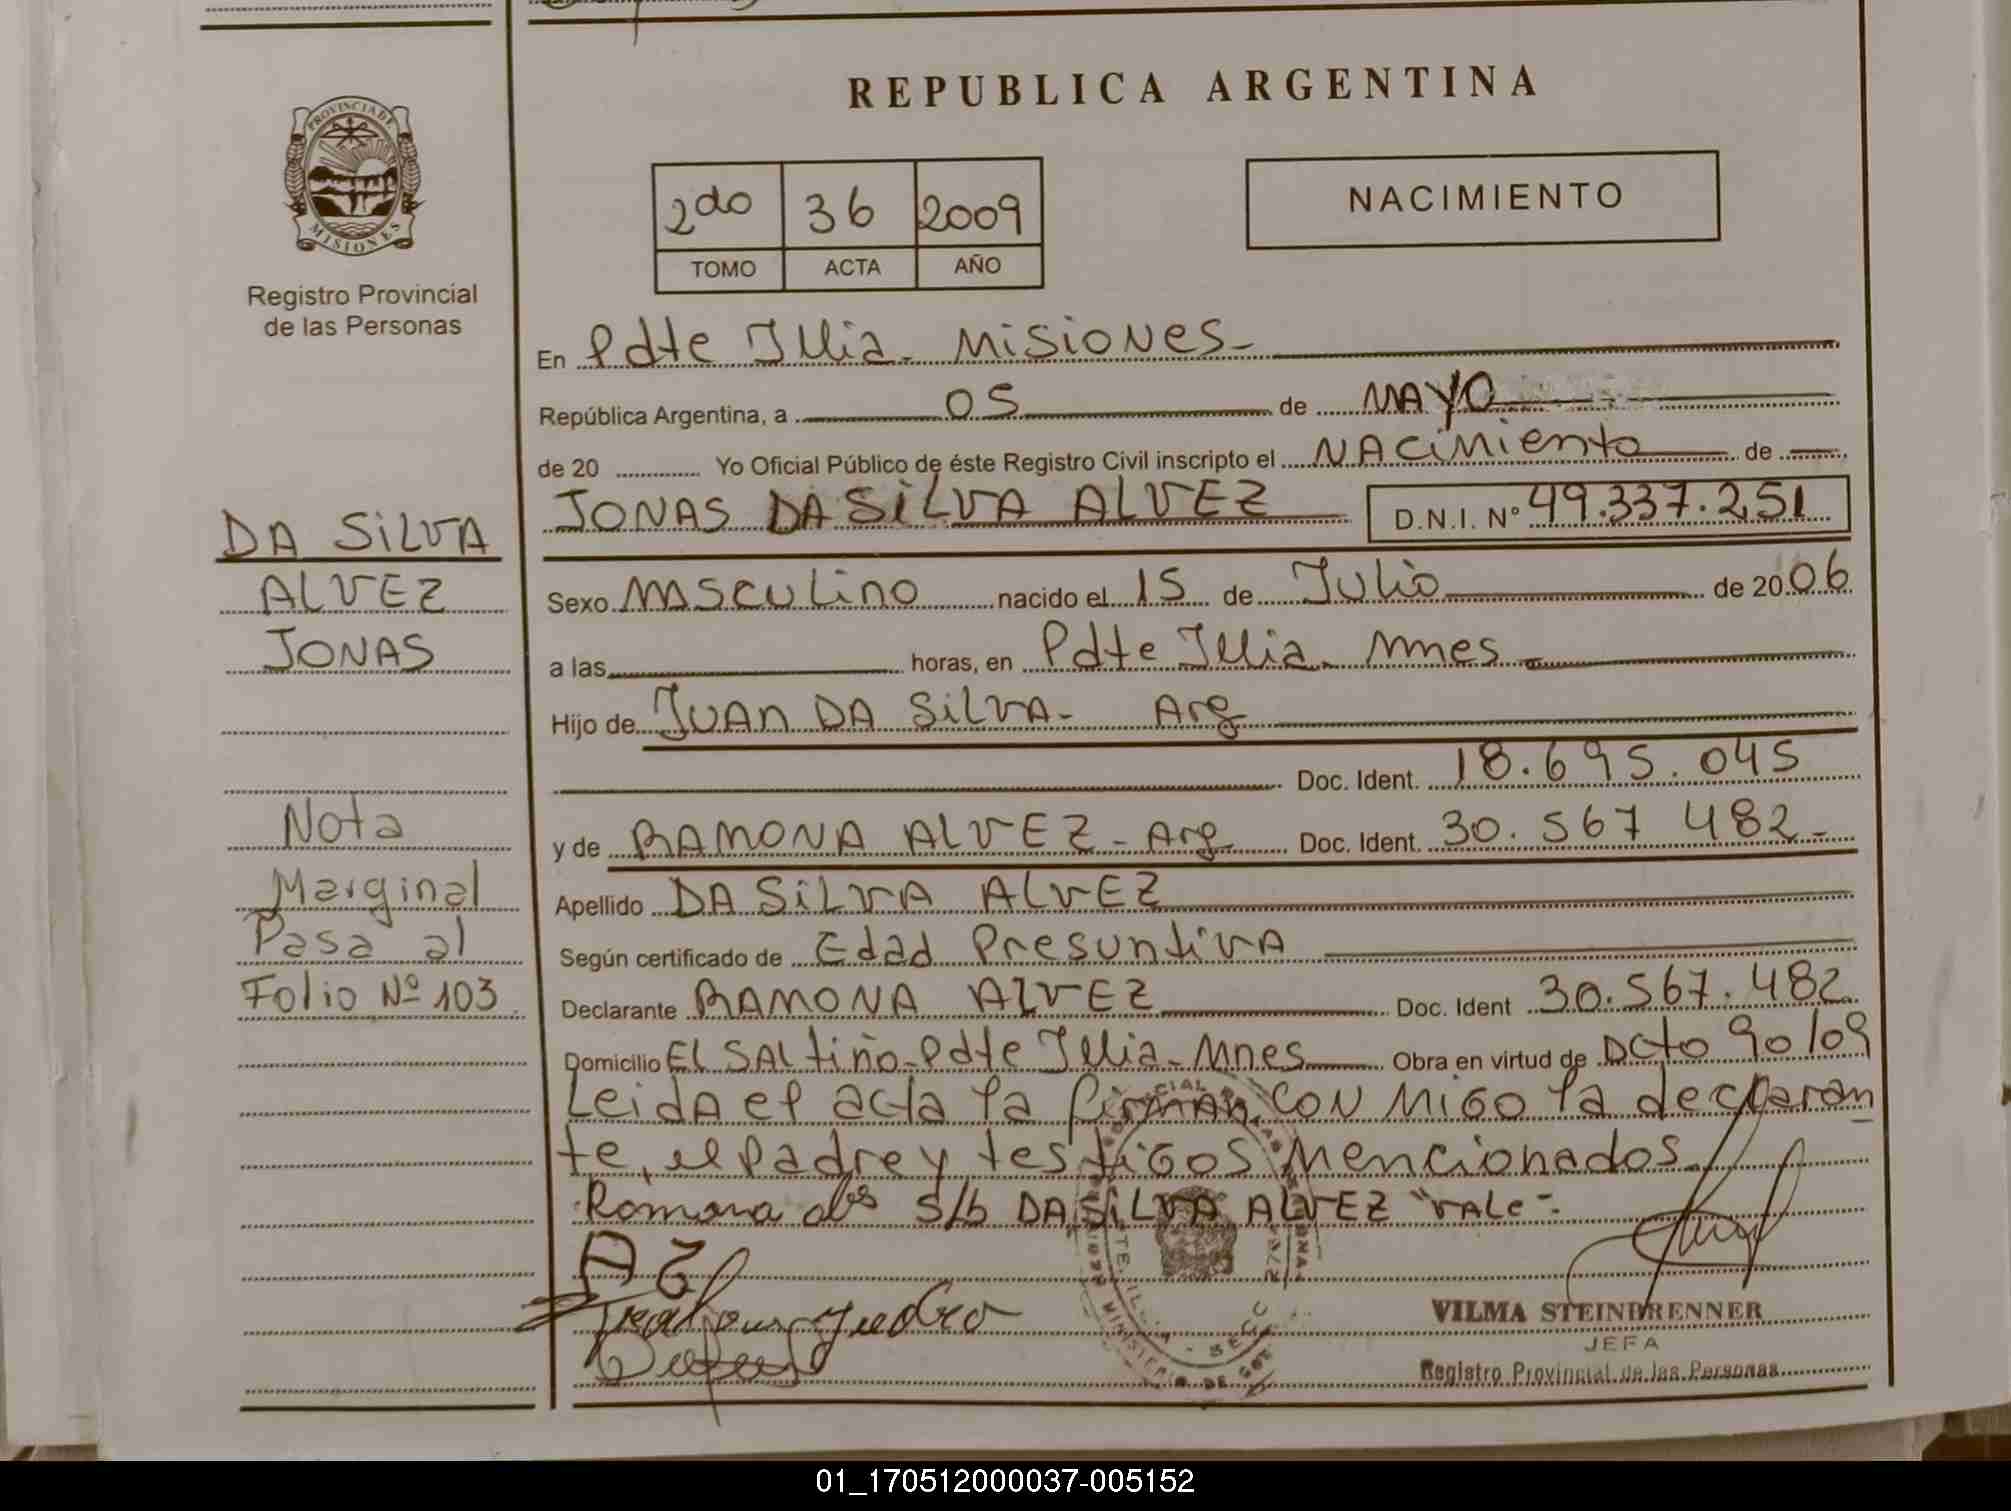 REPUBLICA ARGENTINA
PROVINCIA DE
MISIONES
Registro Provincial
de las Personas
2do 36 2009
TOMO ACTA AÑO
NACIMIENTO
En Pdte Illia - Misiones -
República Argentina, a 05 de MAYO
de 20 Yo Oficial Público de éste Registro Civil inscripto el NACimiento de
JONAS DA SiLVA ALVEZ D.N.I. Nº 49.337.251
DA SiLVA
ALVEZ
JONAS
Sexo MASCULino nacido el 15 de Julio de 2006
a las horas, en Pdte Illia - Mnes -
Hijo de JUAN DA SiLVA - Arg
Doc. Ident. 18.695.045
y de RAMONA ALVEZ - Arg Doc. Ident. 30.567 482 -
Apellido DA SiLVA ALVEZ
Según certificado de Edad PresuntivA
Declarante RAMONA ALVEZ Doc. Ident 30.567.482
Domicilio EL SALtiño - Pdte Illia - Mnes Obra en virtud de Dcto 90/09
Nota
Marginal
Pasa al
Folio Nº 103
LeidA el acta la firman CON MiGO la declaran
te, el Padre y testiGOS Mencionados
Romona S/b DA SiLVA ALVEZ "VALe" -
VILMA STEINBRENNER
JEFA
Registro Provincial de las Personas
01_170512000037-005152